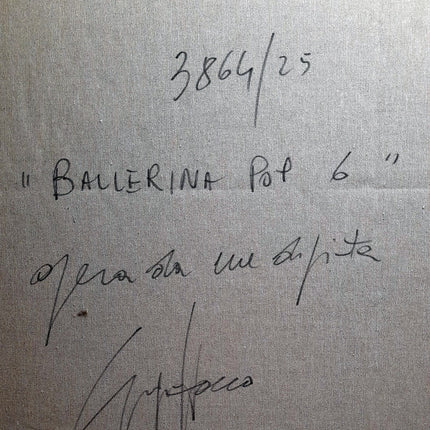 3864/25
" BALLERINA POP 6 "
opera da me dipinta